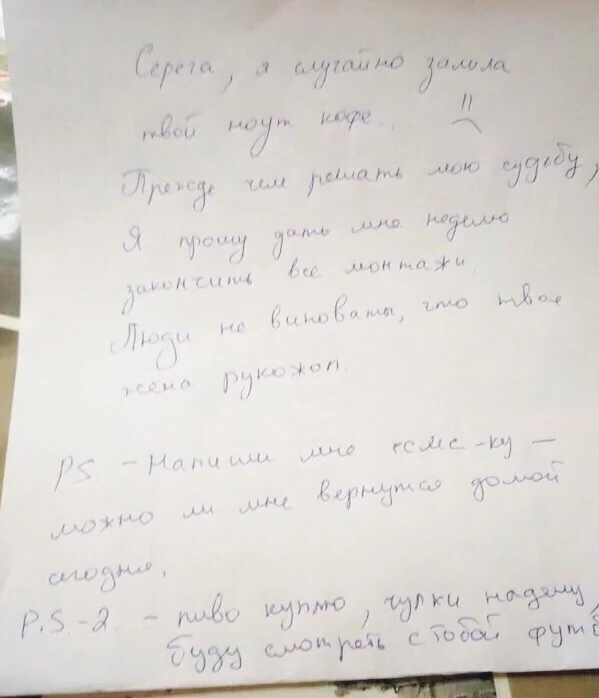 Серега, я случайно залила
твой ноут кофе...
Прежде чем решать мою судьбу,
Я прошу дать мне неделю
закончить все монтажи.
Люди не виноваты, что твоя
жена рукожоп.
PS - Напиши мне смс-ку -
можно ли мне вернутся домой
сегодня.
P.S.-2. - пиво куплю, чулки надену,
буду смотреть с тобой футб